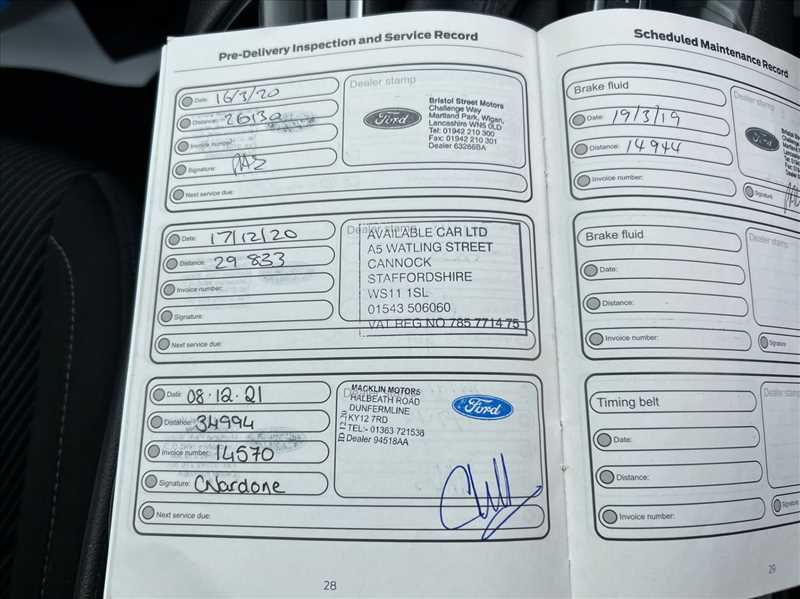 Pre-Delivery Inspection and Service Record
Date: 16/3/20
Distance: 26130
Invoice number:
Signature:
Next service due:
Dealer stamp
Ford
Bristol Street Motors
Challenge Way
Martland Park, Wigan,
Lancashire WN5 0LD
Tel: 01942 210 300
Fax: 01942 210 301
Dealer 63266BA
Date: 17/12/20
Distance: 29 833
Invoice number:
Signature:
Next service due:
Dealer stamp
AVAILABLE CAR LTD
A5 WATLING STREET
CANNOCK
STAFFORDSHIRE
WS11 1SL
01543 506060
VAT REG NO 785 7714 75
Date: 08.12.21
Distance: 34994
Invoice number: 14570
Signature: CWardone
Next service due:
MACKLIN MOTORS
HALBEATH ROAD
DUNFERMLINE
KY12 7RD
TEL:- 01383 721536
Dealer 94518AA
Ford
28
Scheduled Maintenance Record
Brake fluid
Date: 19/3/19
Distance: 14944
Invoice number:
Dealer stamp
Ford
Signature
Brake fluid
Date:
Distance:
Invoice number:
Dealer stamp
Signature
Timing belt
Date:
Distance:
Invoice number:
Dealer stamp
Signature
29